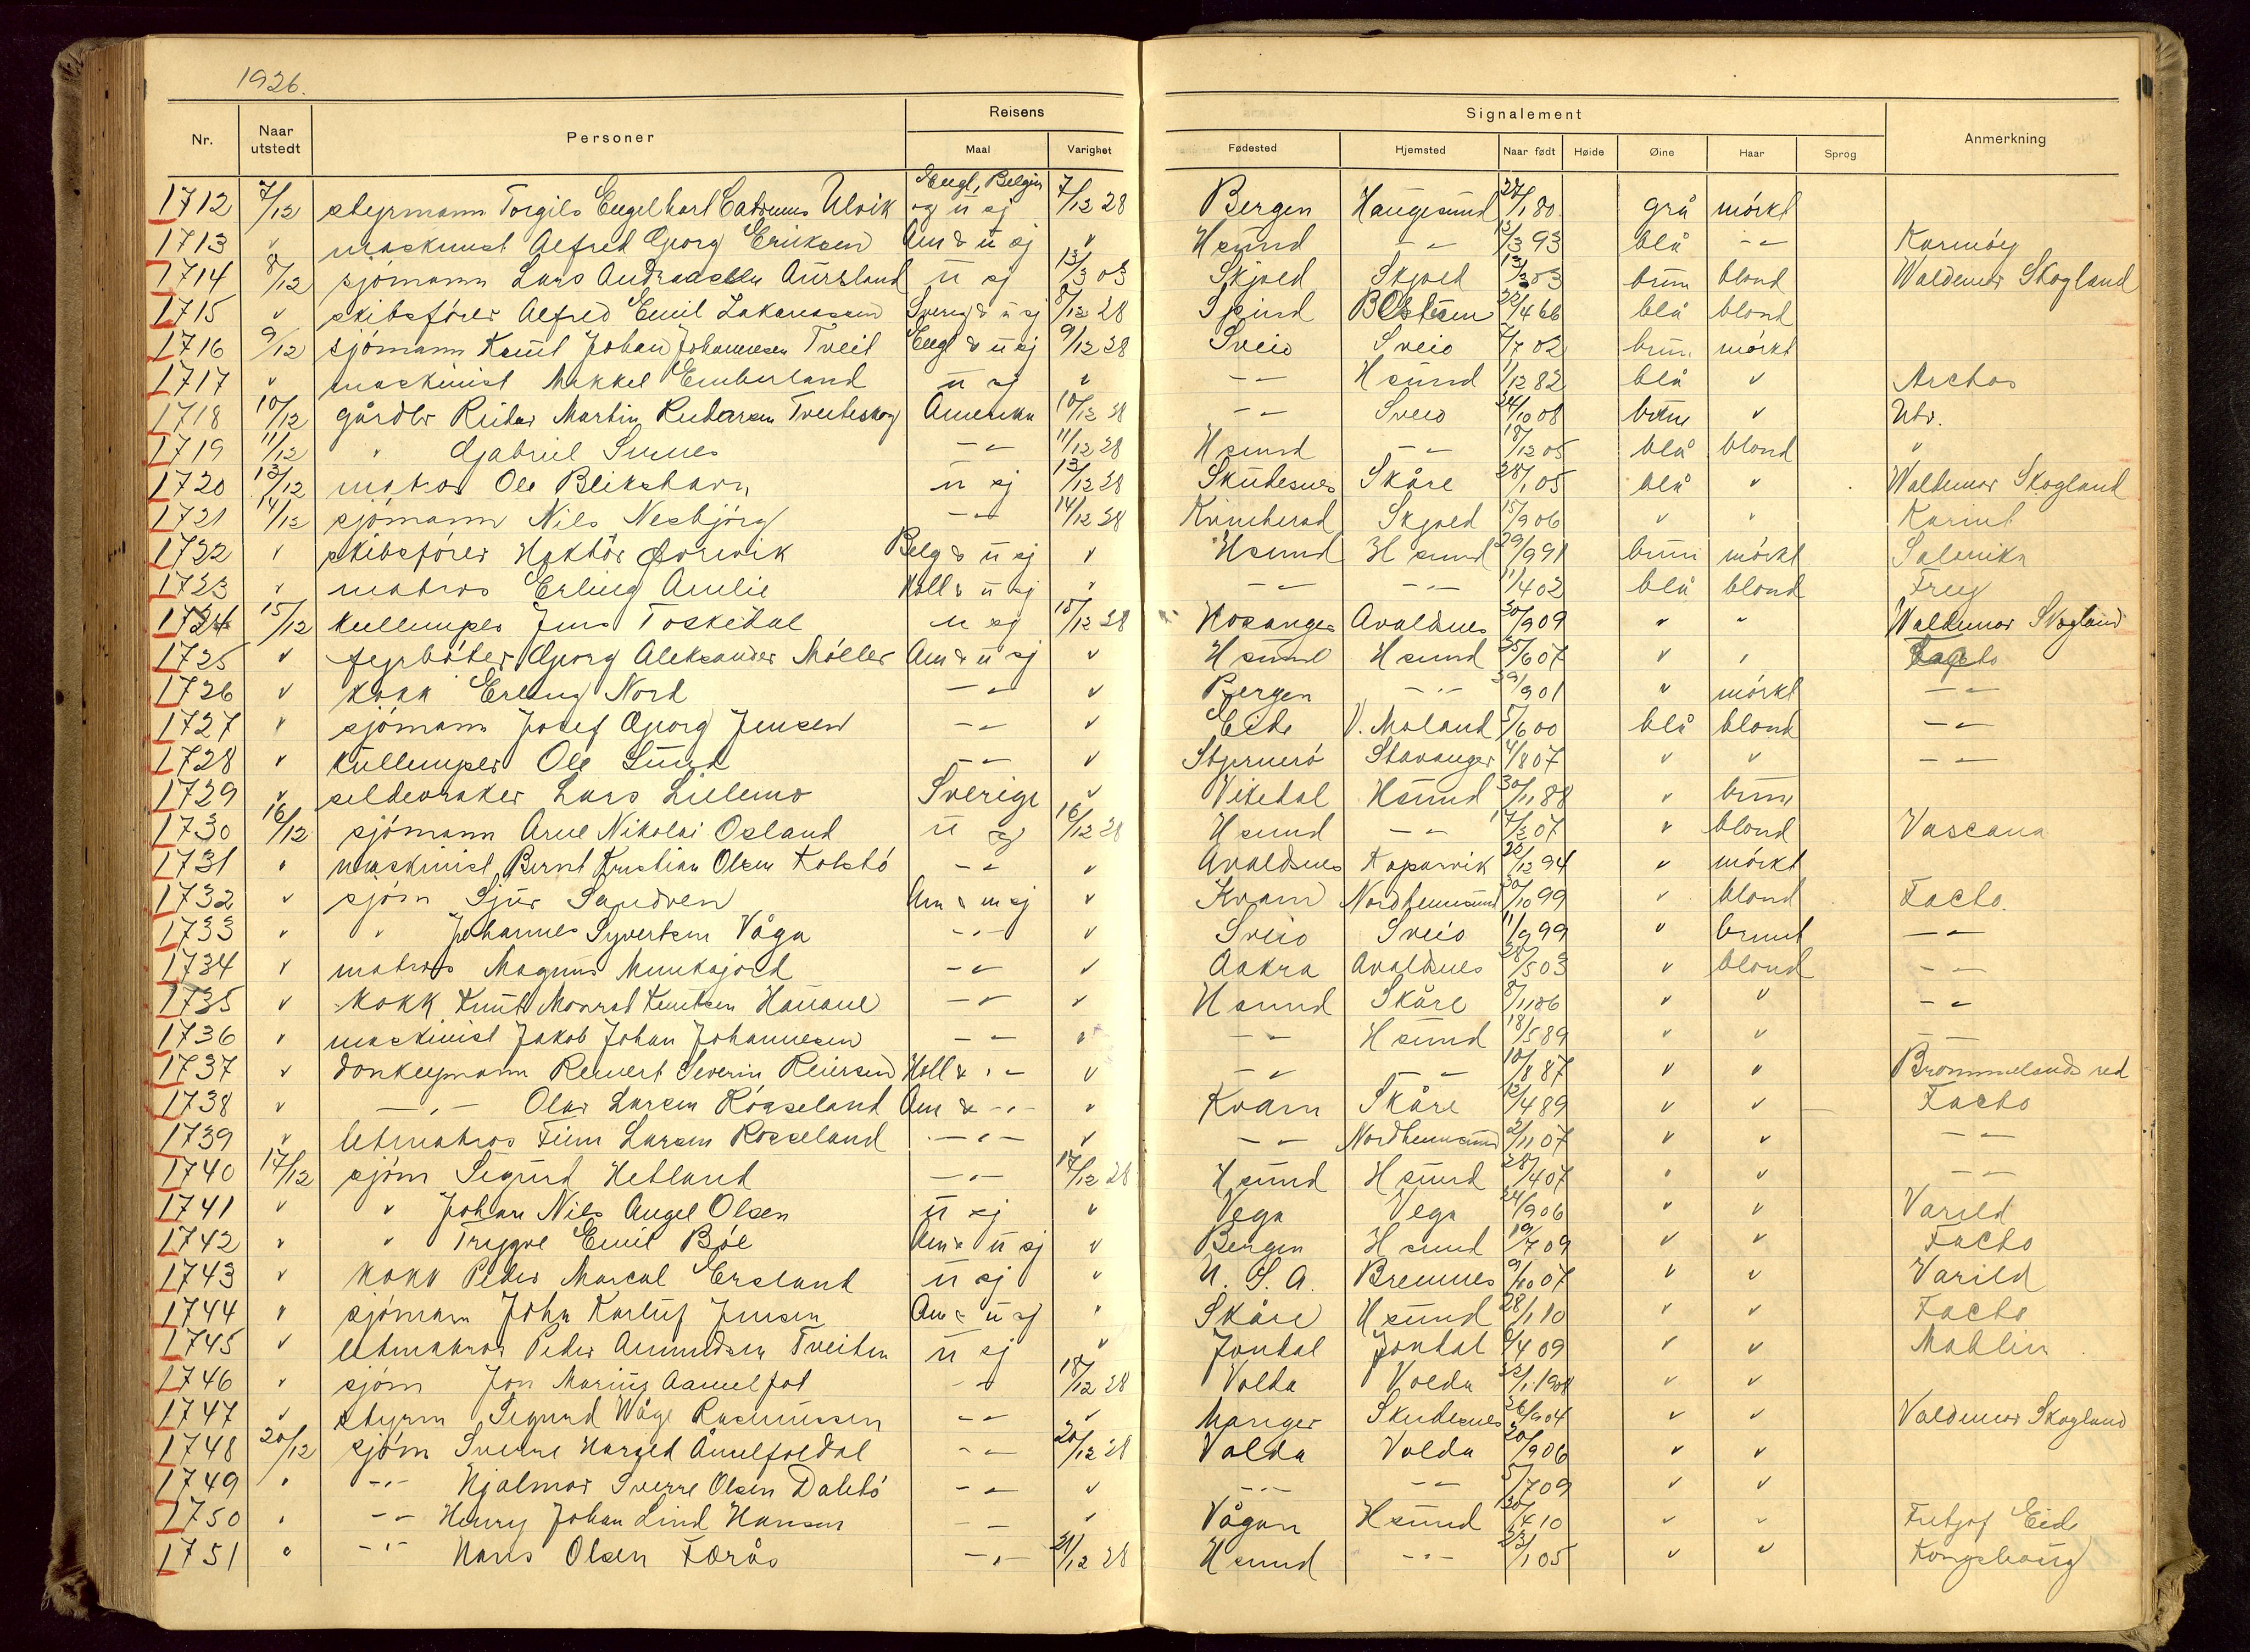 1926.
Nr. Naar utstedt Personer Reisens Maal Varighet Signalement Fødested Hjemsted Naar født Høide Øine Haar Sprog Anmerkning
1712 7/12 styrmann Torgils Engelhart Ulvik Engl, Belgien og u sj 7/12 28 Bergen Haugesund 27/1 80 grå mörkt
1713 " maskinist Alfred Georg Eriksen Am & u sj " H sund - " - 13/3 93 blå - " - Karmöy
1714 8/12 sjömann Lars Andreassen Aursland u sj 13/3 03 Skjold Skjold brun blond Waldemar Skogland
1715 " skibsförer Alfred Emil Zakariassen Sverig & u sj 8/12 28 Spind 22/4 66 blå blond
1716 9/12 sjömann Knut Johan Johannesen Tveit Engl & u sj 9/12 28 Sveio Sveio 7/7 02 brun mörkt
1717 " maskinist Mikkel Emberland u sj " - " - H sund 1/12 82 blå " Arctos
1718 10/12 gårdbr Reidar Martin Reidarsen Tveiteskog Amerika 10/12 28 - " - Sveio 24/10 08 brun " Utv.
1719 11/12 " Gabriel - " - 11/12 28 H sund - " - 18/12 05 blå blond "
1720 13/12 matros Ole Blikshavn u sj 13/12 28 Skudesnes Skåre 28/1 05 blå " Waldemar Skogland
1721 14/12 sjömann Nils Nesbjörg - " - 14/12 28 Kvinherad Skjold 15/9 06 " " Karmt
1722 " skibsförer Belg & u sj " H sund H sund 29/9 91 brun mörkt
1723 " matros Erling Amlie Holl & u sj " - " - - " - 11/4 02 blå blond
1724 15/12 kullemper Jens Toskedal u sj 15/12 28 Hosanger Avaldsnes 30/9 09 " " Waldemar Skogland
1725 " fyrböter Georg Aleksander Möller Am & u sj " H sund H sund 25/6 07 " " Facto
1726 " kokk Erling Nord - " - " Bergen - " - 29/9 01 " mörkt - " -
1727 " sjömann Josef Georg Jensen - " - " Eide V. Moland 5/6 00 blå blond - " -
1728 " kullemper Ole Lund - " - " Stjernerö Stavanger 4/8 07 " " - " -
1729 " sildevraker Lars Lillemo Sverige " Vikedal H sund 30/11 88 " brun
1730 16/12 sjömann Arne Nikolai Osland u sj 16/12 28 H sund - " - 7/2 07 " blond Vascana
1731 " maskinist Bernt Kristian Olsen Kolstö - " - " Avaldsnes Kopervik 22/12 94 " mörkt
1732 " sjöm Sjur Sandven Am & u sj " Kvam Nordheimsund 30/10 99 " blond Facto
1733 " " Johannes Syvertsen Våga - " - " Sveio Sveio 11/9 99 " brunt - " -
1734 " matros Magnus Munkejord - " - " Aakra Avaldsnes 28/5 03 " blond - " -
1735 " kokk Knut Monrad Knutsen Hauane - " - " H sund Skåre 8/11 06 " " - " -
1736 " maskinist Jakob Johan Johannesen - " - " - " - H sund 18/5 89 " " - " -
1737 " donkeymann Reinert Severin Reiersen Holl & - " - " - " - - " - 10/8 87 " " Brommelands red
1738 " - " - Olav Larsen Rösseland Am & - " - " Kvam Skåre 12/4 89 " " Facto
1739 " letmatros Finn Larsen Rosseland - " - " - " - Nordheimsund 2/11 07 " " - " -
1740 17/12 sjöm Sigurd Hetland - " - 17/12 28 H sund H sund 28/4 07 " " - " -
1741 " " Johan Nils Angel Olsen u sj " Vega Vega 24/9 06 " " Varild
1742 " " Trygve Emil Böe Am & u sj " Bergen H sund 19/7 09 " " Facto
1743 " kokk Peder Marcal Ersland u sj " U. S. A. Bremnes 9/10 07 " " Varild
1744 " sjömann John Karluf Jensen Am & u sj " Skåre H sund 28/1 10 " " Facto
1745 " letmatros Peder Amundsen Tveiten u sj " Jondal Jondal 6/4 09 " " Mablin
1746 " sjöm Jon Marius - " - 18/12 28 Volda Volda " "
1747 " styrm Sigurd Wåge Rasmussen - " - " Manger Skudesnes 26/9 04 " " Valdemar Skogland
1748 20/12 sjöm Sverre Åmelfoldal - " - 20/12 28 Volda Volda 20/9 06 " "
1749 " - " - Hjalmar Sverre Olsen Dalstö - " - " - " - - " - 5/7 09 " "
1750 " - " - Henry Johan Lind Hansen - " - " Vågan H sund 30/4 10 " " Fritjof Eide
1751 " - " - Hans Olsen Færås - " - 21/12 28 H sund - " - 23/1 05 " " Kongshaug